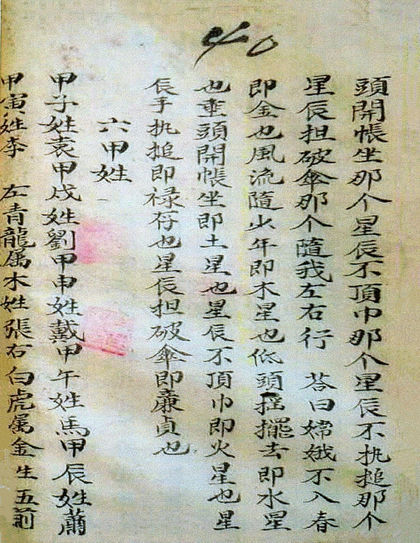 40
頭開帳坐那个星辰不頂巾那个星辰不执搥那个
星辰担破傘那个隨我左右行 荅曰嫦娥不入春
即金也風流隨少年即木星也低頭摇擺去即水星
也重頭開帳坐即土星也星辰不頂巾即火星也星
辰手执搥即禄存也星辰担破傘即亷貞也
六甲姓
甲子姓袁甲戌姓劉甲申姓戴甲午姓馬甲辰姓蕭
甲寅姓李 左青龍属木姓張右白虎属金生五前